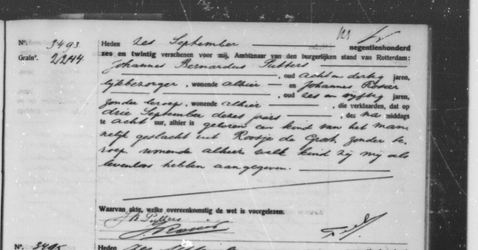 Nº. 3493
Gratis. 2244
Heden zes September negentienhonderd
zes en twintig verschenen voor mij, Ambtenaar van den burgerlijken stand van Rotterdam:
Johannes Bernardus Putters
, oud acht en dertig jaren,
lijkbezorger, wonende alhier en Johannes
, oud zes en vijftig jaren,
zonder beroep, wonende alhier, die verklaarden, dat op
drie September dezes jaars, des na middags
te acht uur, alhier is geboren een kind van het man-
nelijk geslacht uit Roosje de Groot, zonder be-
roep wonende alhier welk kind zij mij als
levenloos hebben aangegeven.
Waarvan akte, welke overeenkomstig de wet is voorgelezen.
J B Putters
Nº. 3495
Heden